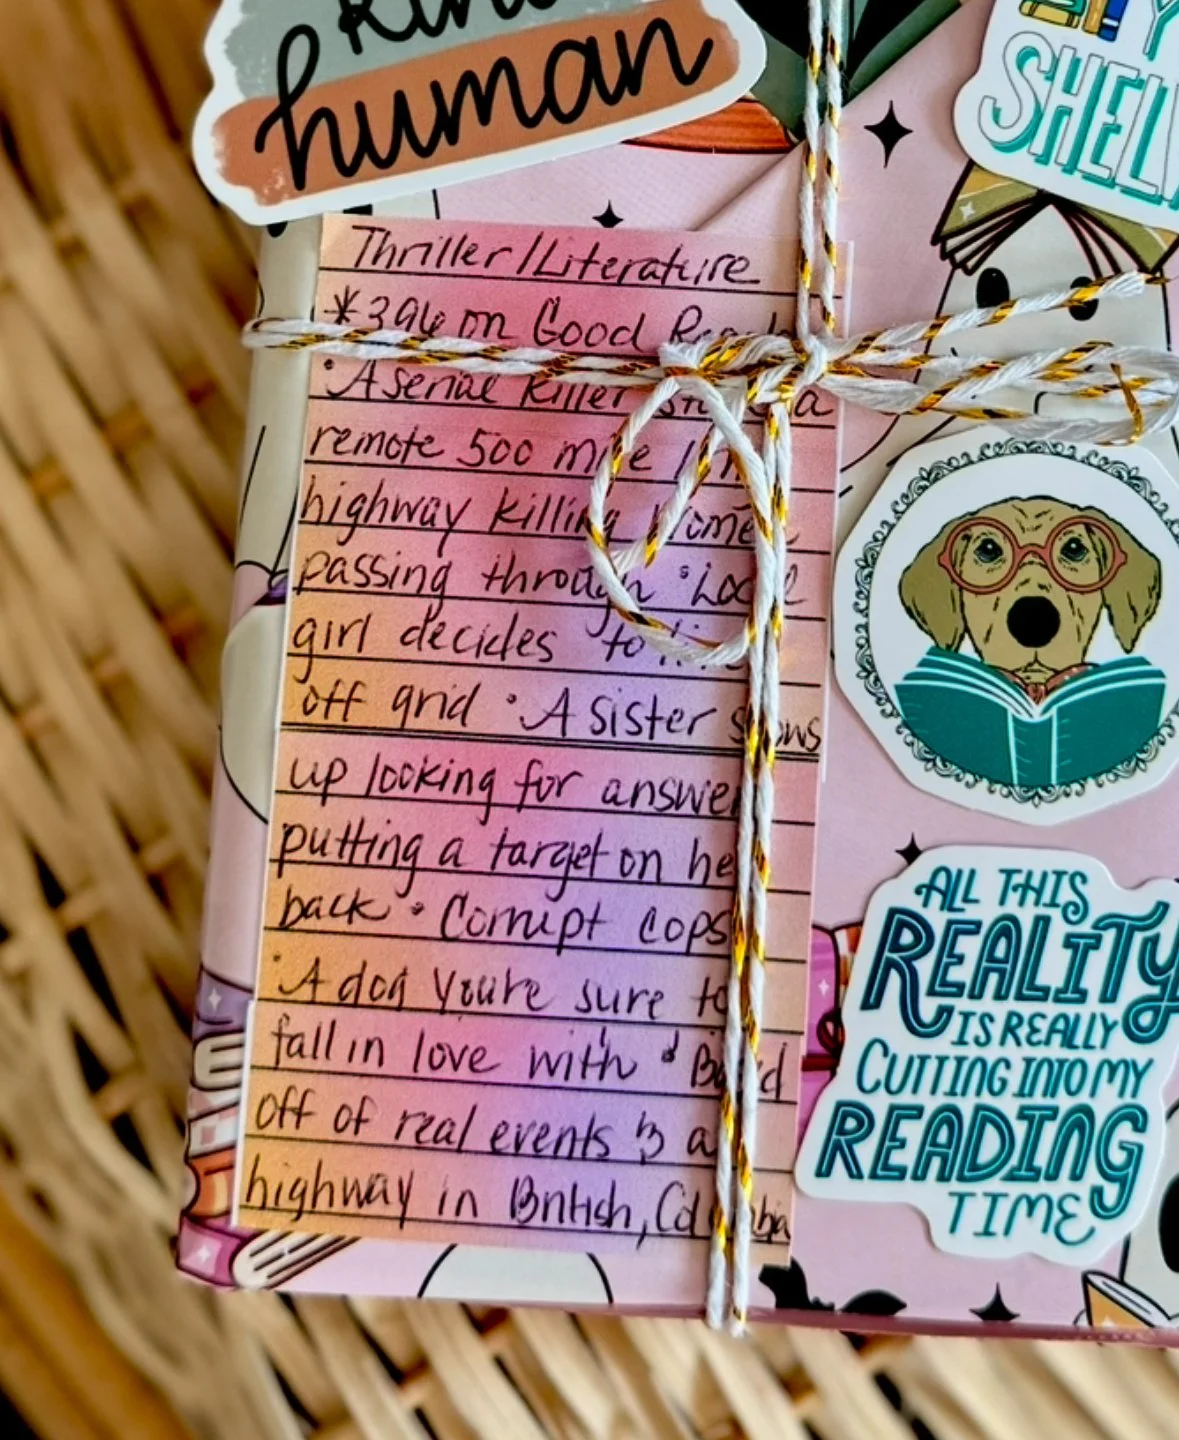 human
SHEL
Thriller/Literature
*3.94 on Good
• A serial killer a
remote 500 mile
highway killing women
passing through • Local
girl decides to
off grid • A sister shows
up looking for answer
putting a target on he
back • Corrupt cops
• A dog you're sure to
fall in love with • Based
off of real events & a
highway in British, Columbia
ALL THIS
REALITY
IS REALLY
CUTTING INTO MY
READING
TIME